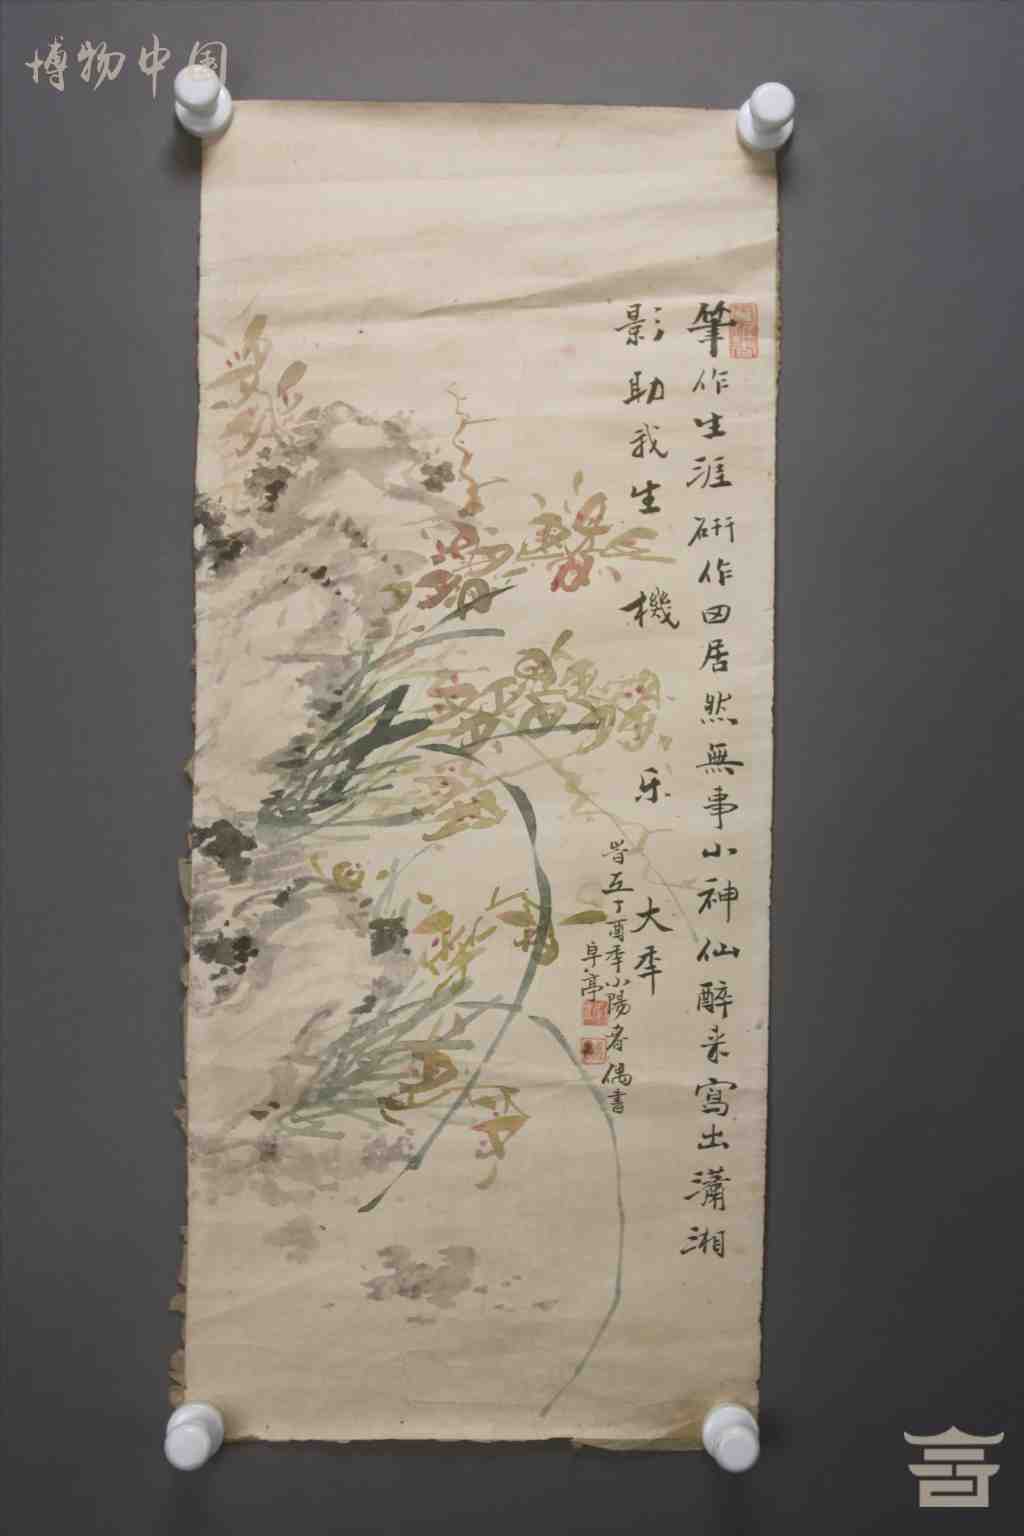 博物中国
筆作生涯硏作田居然無事小神仙醉来寫出瀟湘
影助我生機乐大秊
旹五丁酉秊小陽春偶書
阜亭